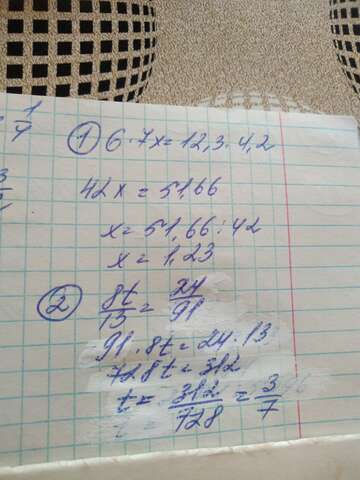 1/7
① 6·7x=12,3·4,2
3
42x=51,66
x=51,66:42
x=1,23
② 8t/13=24/91
91·8t=24·13
728t=312
t=312/728=3/7